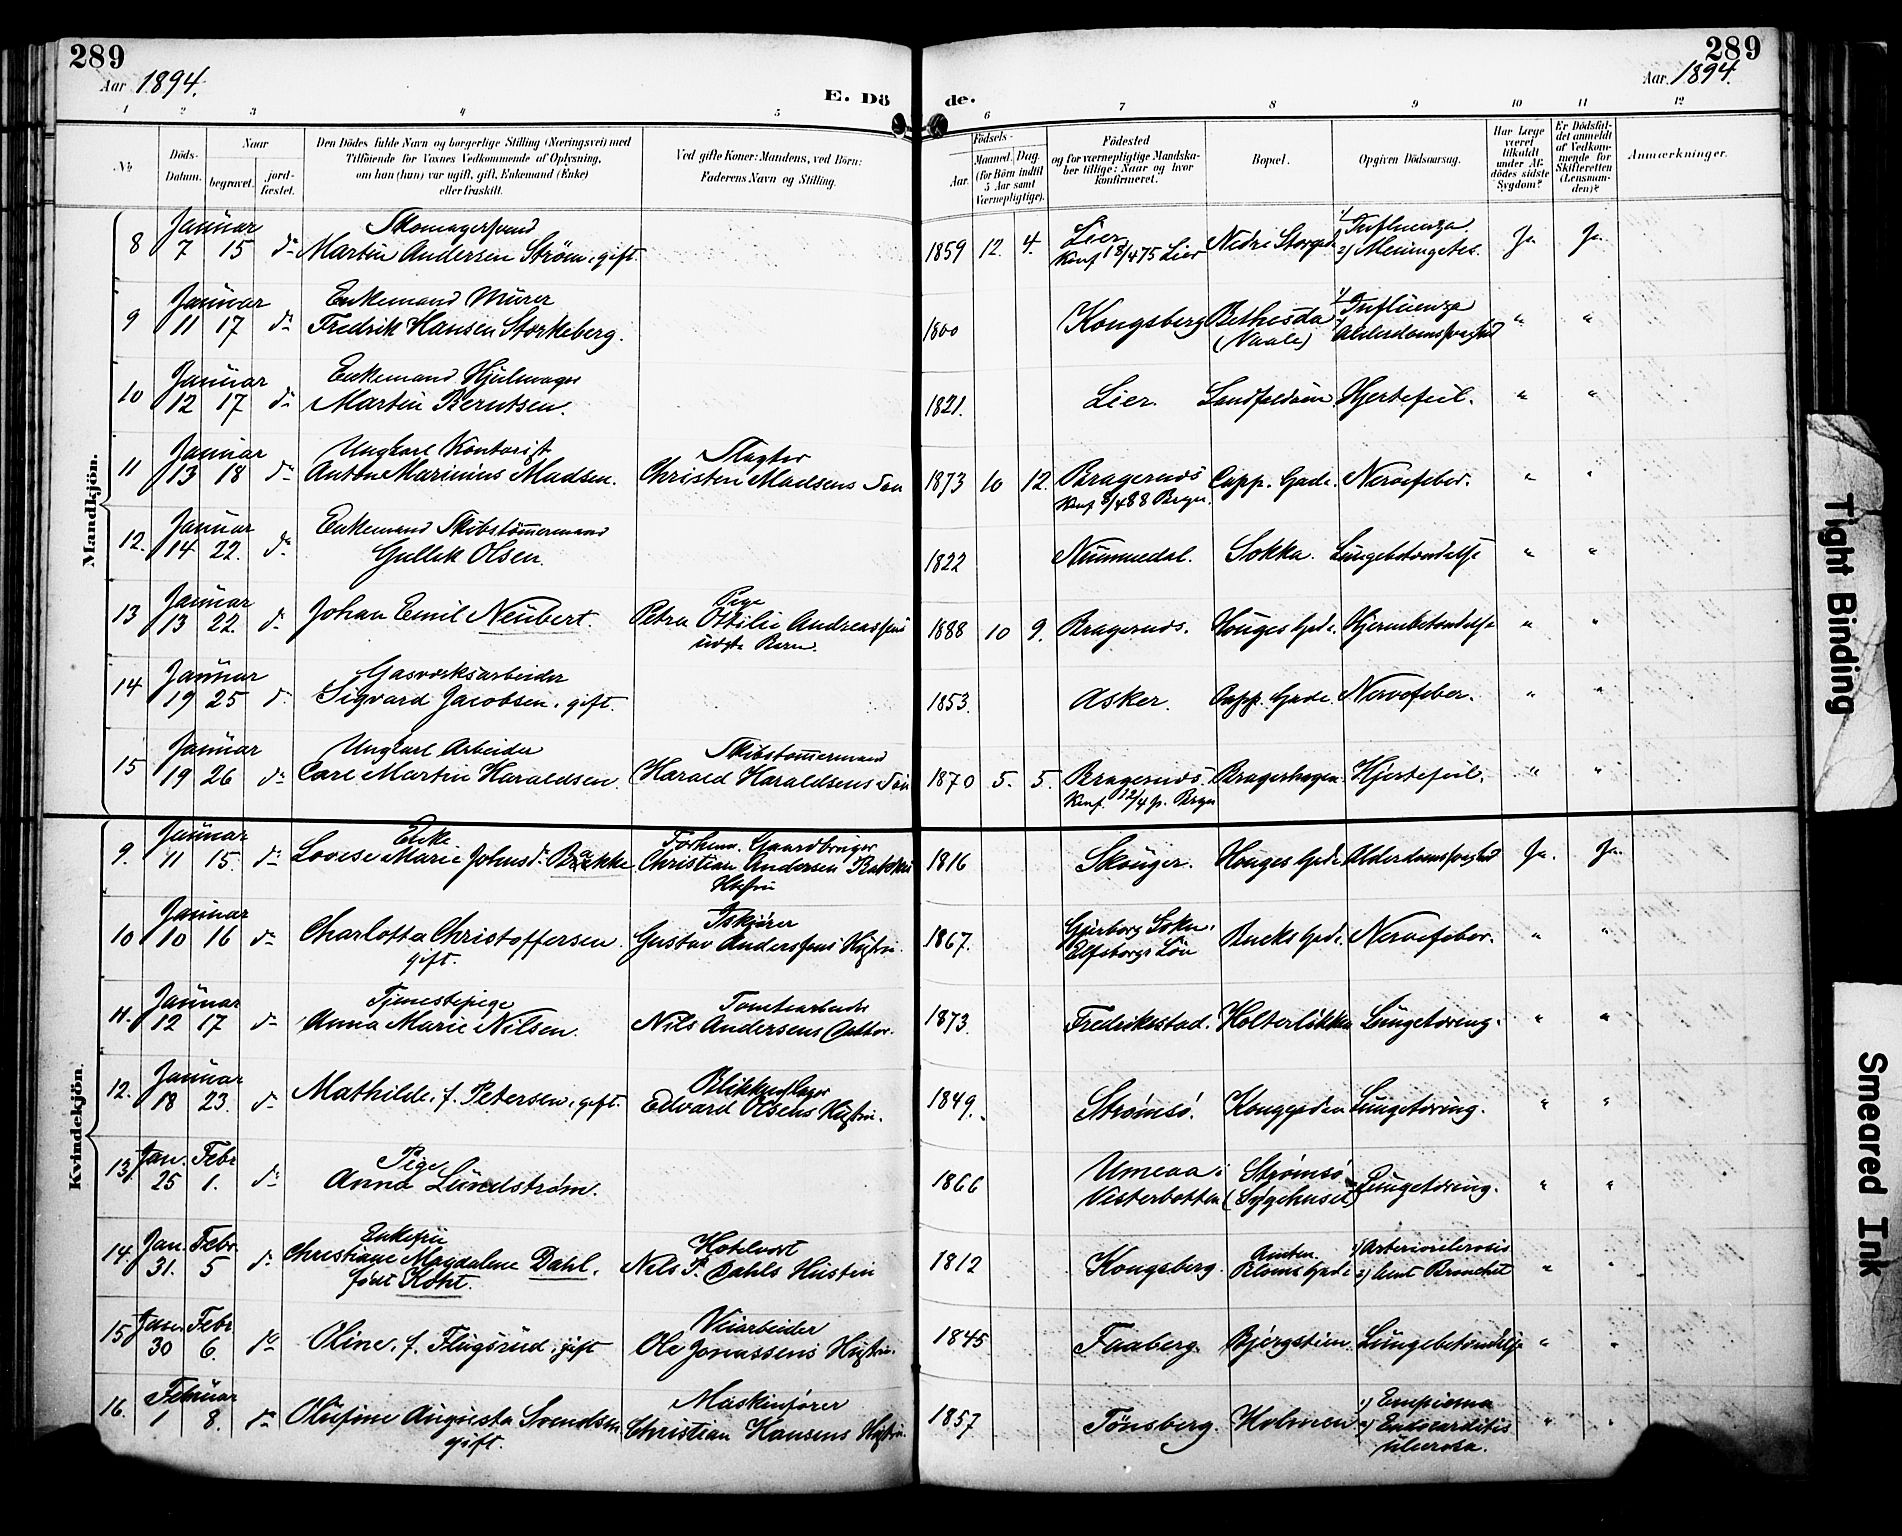 289
289
Aar 1894.
Aar 1894.
E. Dö
de.
1 2 3 4 5
6 7 8 9 10 11 12
No
Döds-
Datum.
Naar
begravet.
jord-
fæstet.
Den Dödes fulde Navn og borgerlige Stilling (Næringsvei) med
Tilföiende for Voxnes Vedkommende af Oplysning,
om han (hun) var ugift, gift, Enkemand (Enke)
eller fraskilt.
Ved gifte Koner: Mandens, ved Börn:
Faderens Navn og Stilling.
Födsels-
Aar.
Maaned. Dag.
(for Börn indtil
5 Aar samt
Værnepligtige).
Födested
og for værnepligtige Mandska-
ber tillige: Naar og hvor
konfirmeret.
Bopæl.
Opgiven Dödsaarsag.
Har Læge
været
tilkaldt
under Af-
dödes sidste
Sygdom?
Er Dödsfal-
det anmeldt
af Vedkom-
mende for
Skifteretten
(Lensman-
den)?
Anmærkninger.
Mandkjön.
Januar Skomagersvend 1) Influenza.
8 7 15 do Martin Andersen Strøm, gift 1859 12. 4. Lier Nedre Storgade 2) Meningetes. Ja Ja
Konf 18/4 75 Lier
Januar Enkemand Murer 1) Influenza
9 11 17 do Fredrik Hansen Storkeberg. 1800 Kongsberg Bethesda Alderdomssvaghed " "
(Vaale)
Januar Enkemand Hjulmager
10 12 17 do Martin Berntsen. 1821. Lier. Landfaldøien Hjertefeil. " "
Januar Ungkarl Kontorist Slagter
11 13 18 do Anton Marinius Madsen. Christen Madsens Søn 1873 10 12. Bragernæs Capp. Gade. Nervefeber. " "
Konf 8/4 88 Brgn.
Januar Enkemand Skibstömmermand
12. 14 22. do Gullik Olsen. 1822 Nummedal. Sokka. Lungebetændelse " "
Januar Pige
13 13 22. do Johan Emil Neubert. Petra Ottilie Andreassens 1888 10 9. Bragernæs. Houges Gade. Hjernebetændelse " "
uægte Barn.
Januar Gasverksarbeider
14 19 25 do Sigvard Jacobsen, gift. 1853. Asker. Capp. Gade. Nervefeber. " "
Januar Ungkarl Arbeider Skibstømmermand
15 19 26 do Carl Martin Haraldsen. Harald Haraldsens Søn 1870 5. 5. Bragernæs Bragerhagen Hjertefeil. " "
Konf. 12/4 Brgn
Kvindekjön.
Januar Enke Forhenv. Gaardbruger
9. 11 15. do Lovise Marie Johnsd. Bakke Christian Andersen Bakkes 1816 Skouger. Houges Gade Alderdomssvaghed Ja. Ja.
Hustru
Januar Iskjører
10 10 16 do Charlotta Christoffersen. Gustav Anderssens Hustru. 1867. Elfsborgs Län Bucks Gade. Nervefeber. " "
gift.
Januar Tjenestepige Tomtearbeider
11. 12 17 do Anna Marie Nilsen. Nils Andersens Datter. 1873. Fredrikstad. Holterløkken Lungetæring. " "
Januar Blikkenslager
12. 18 23. do Mathilde, f. Petersen, gift. Edvard Olsens Hustru. 1849. Strømsø. Konggaden Lungetæring. " "
Jan. Febr Pige
13 25 1. do Anna Lundström. 1866 Umeaa i Strømsö Lungetæring. " "
Vesterbotten (Sygehuset)
Jan. Febr. Enkefru Hotelvert 1) Arteriosclerosis
14 31. 5 do Christiane Magdalene Dahl, Nils P. Dahls Hustru 1812 Kongsberg. 2) Acut Bronchit " "
født Koht.
Jan. Febr Veiarbeider
15 30 6. do Oline, f. Flugsrud, gift Ole Jonassens Hustru. 1845 Faaberg. Bjergstien. Lungebetændelse " "
Februar Maskinfører 1) Empiema
16. 1 8. do Olufine Augusta Svendsen Christian Hansens Hustru. 1857 Tønsberg. Holmen 2) Endocarditis " "
gift. ulcerosa.
Tight Binding
Smeared Ink